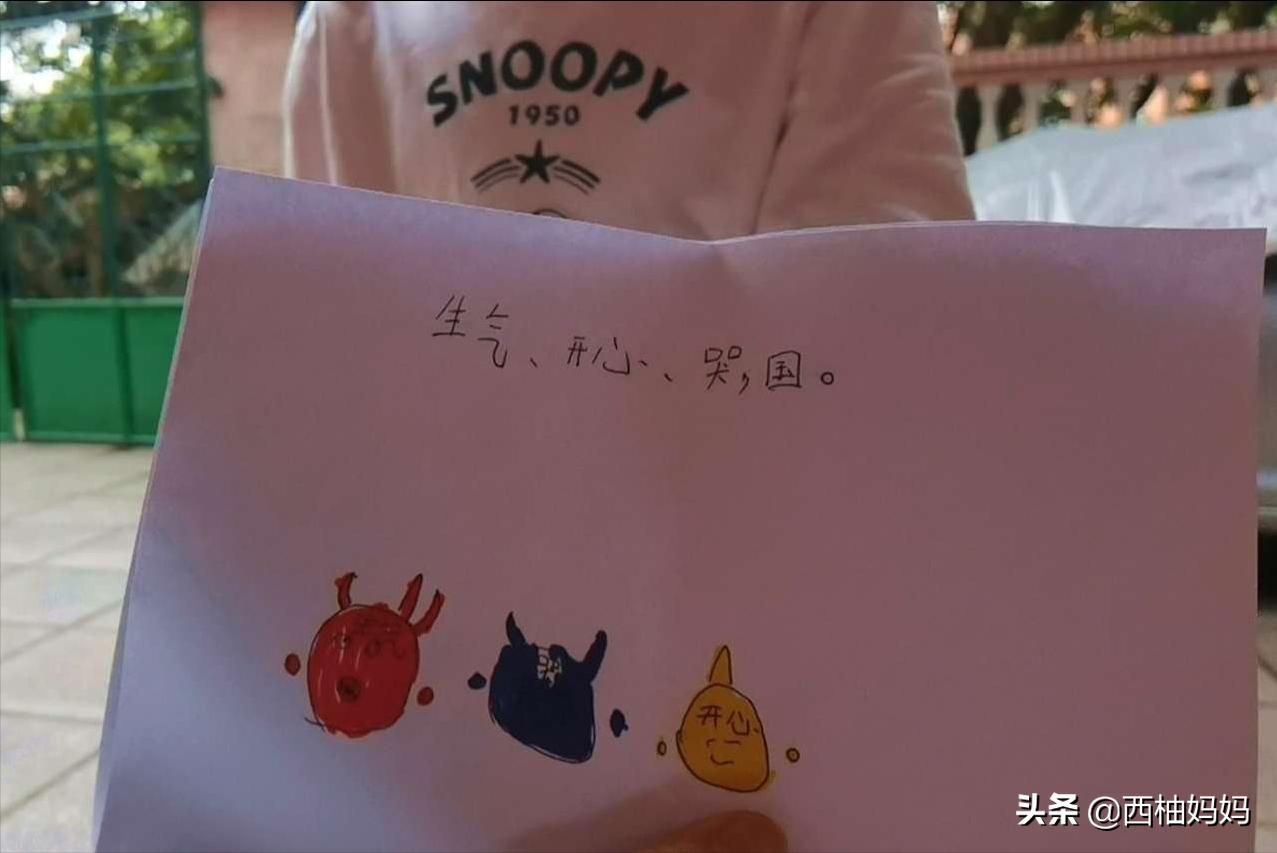 SNOOPY
1950
生气、开心、哭,国。
开心
头条 @西柚妈妈